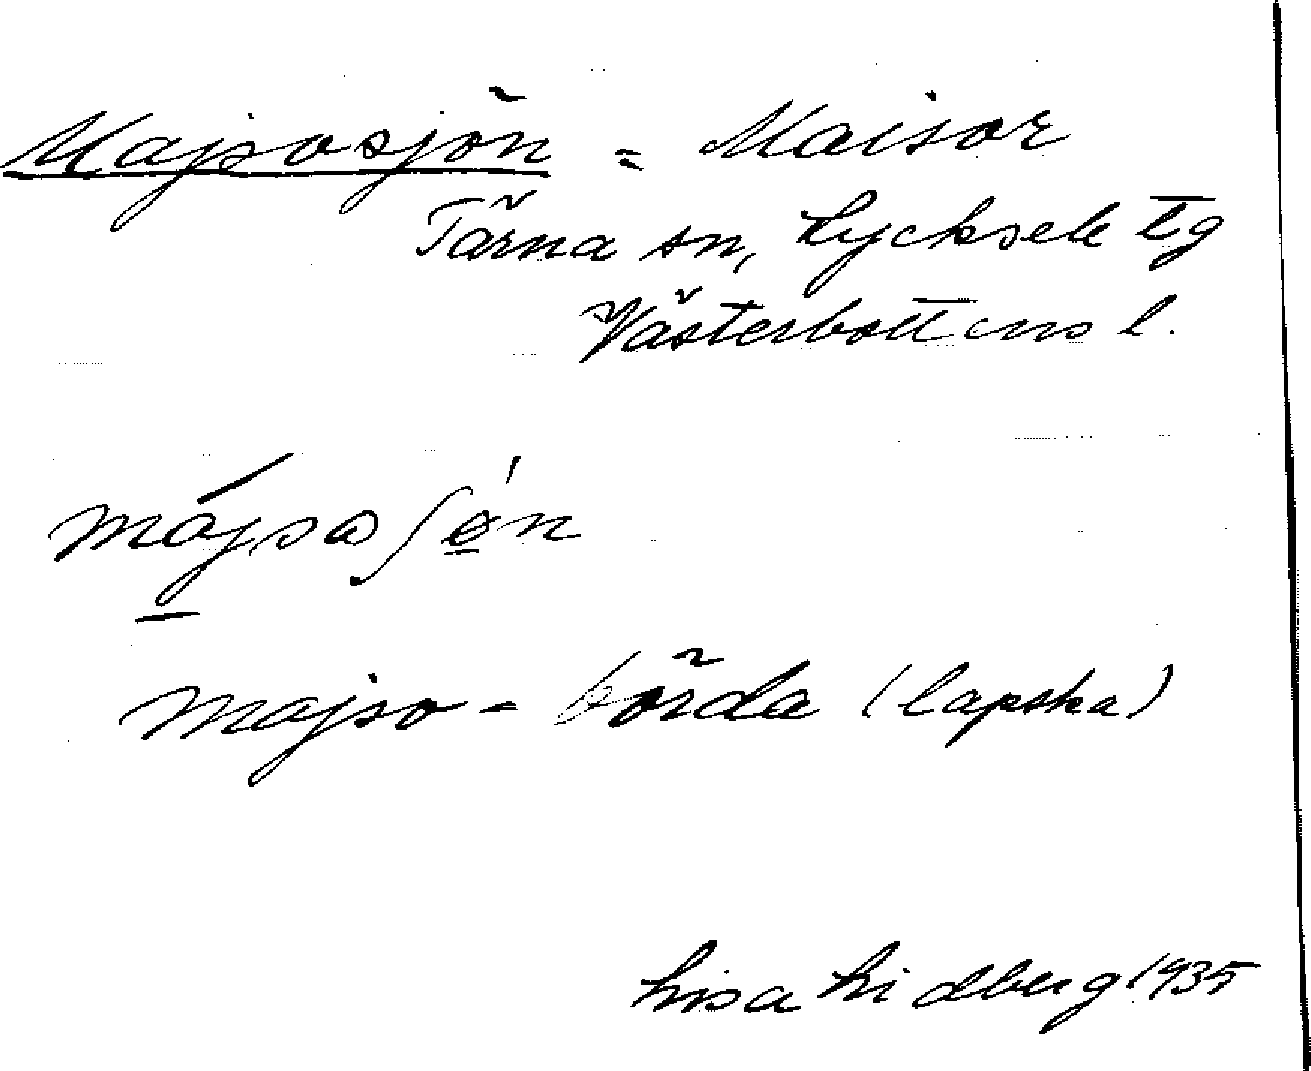 Majsosjön = Maisor
Tärna sn, Lycksele lg
Västerbottens l.
májsaʃén
majso - börda (lapska)
Lisa Lidberg 1935